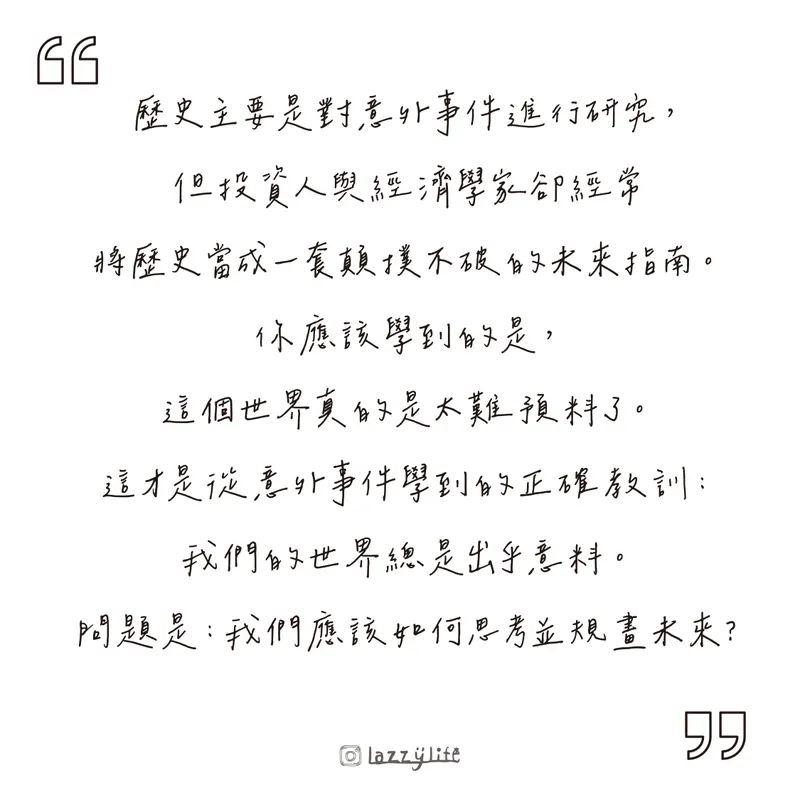 歷史主要是對意外事件進行研究，
但投資人與經濟學家卻經常
將歷史當成一套顛撲不破的未來指南。
你應該學到的是，
這個世界真的是太難預料了。
這才是從意外事件學到的正確教訓：
我們的世界總是出乎意料。
問題是：我們應該如何思考並規畫未來？
lazzylife